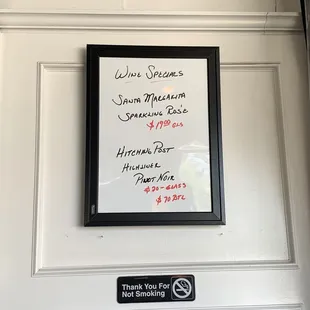 Wine Specials
Santa Margarita
Sparkling Rosé
$19.00 GLS
Hitching Post
Highliner
Pinot Noir
$20-GLASS
$70 BTL
Thank You For
Not Smoking